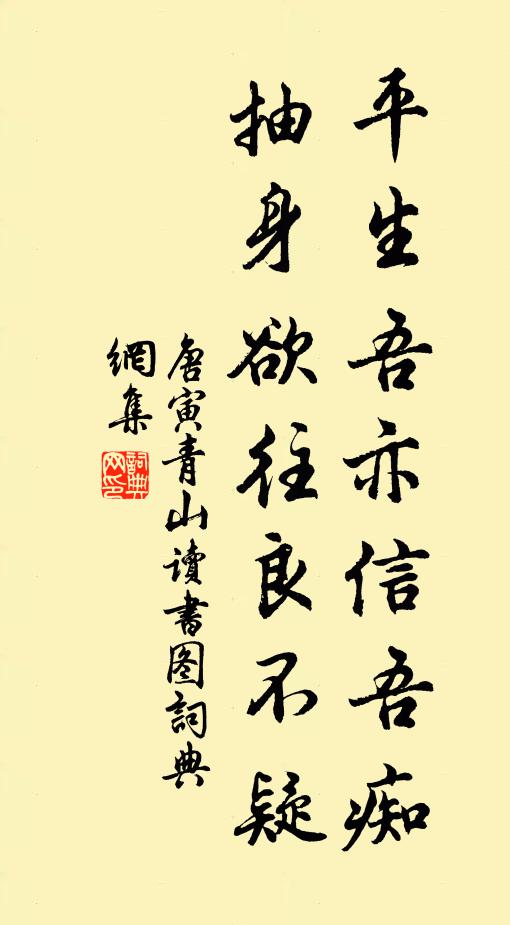 平生吾亦信吾痴
抽身欲往良不疑
唐寅青山读书图詞典
網集
詞典
网印